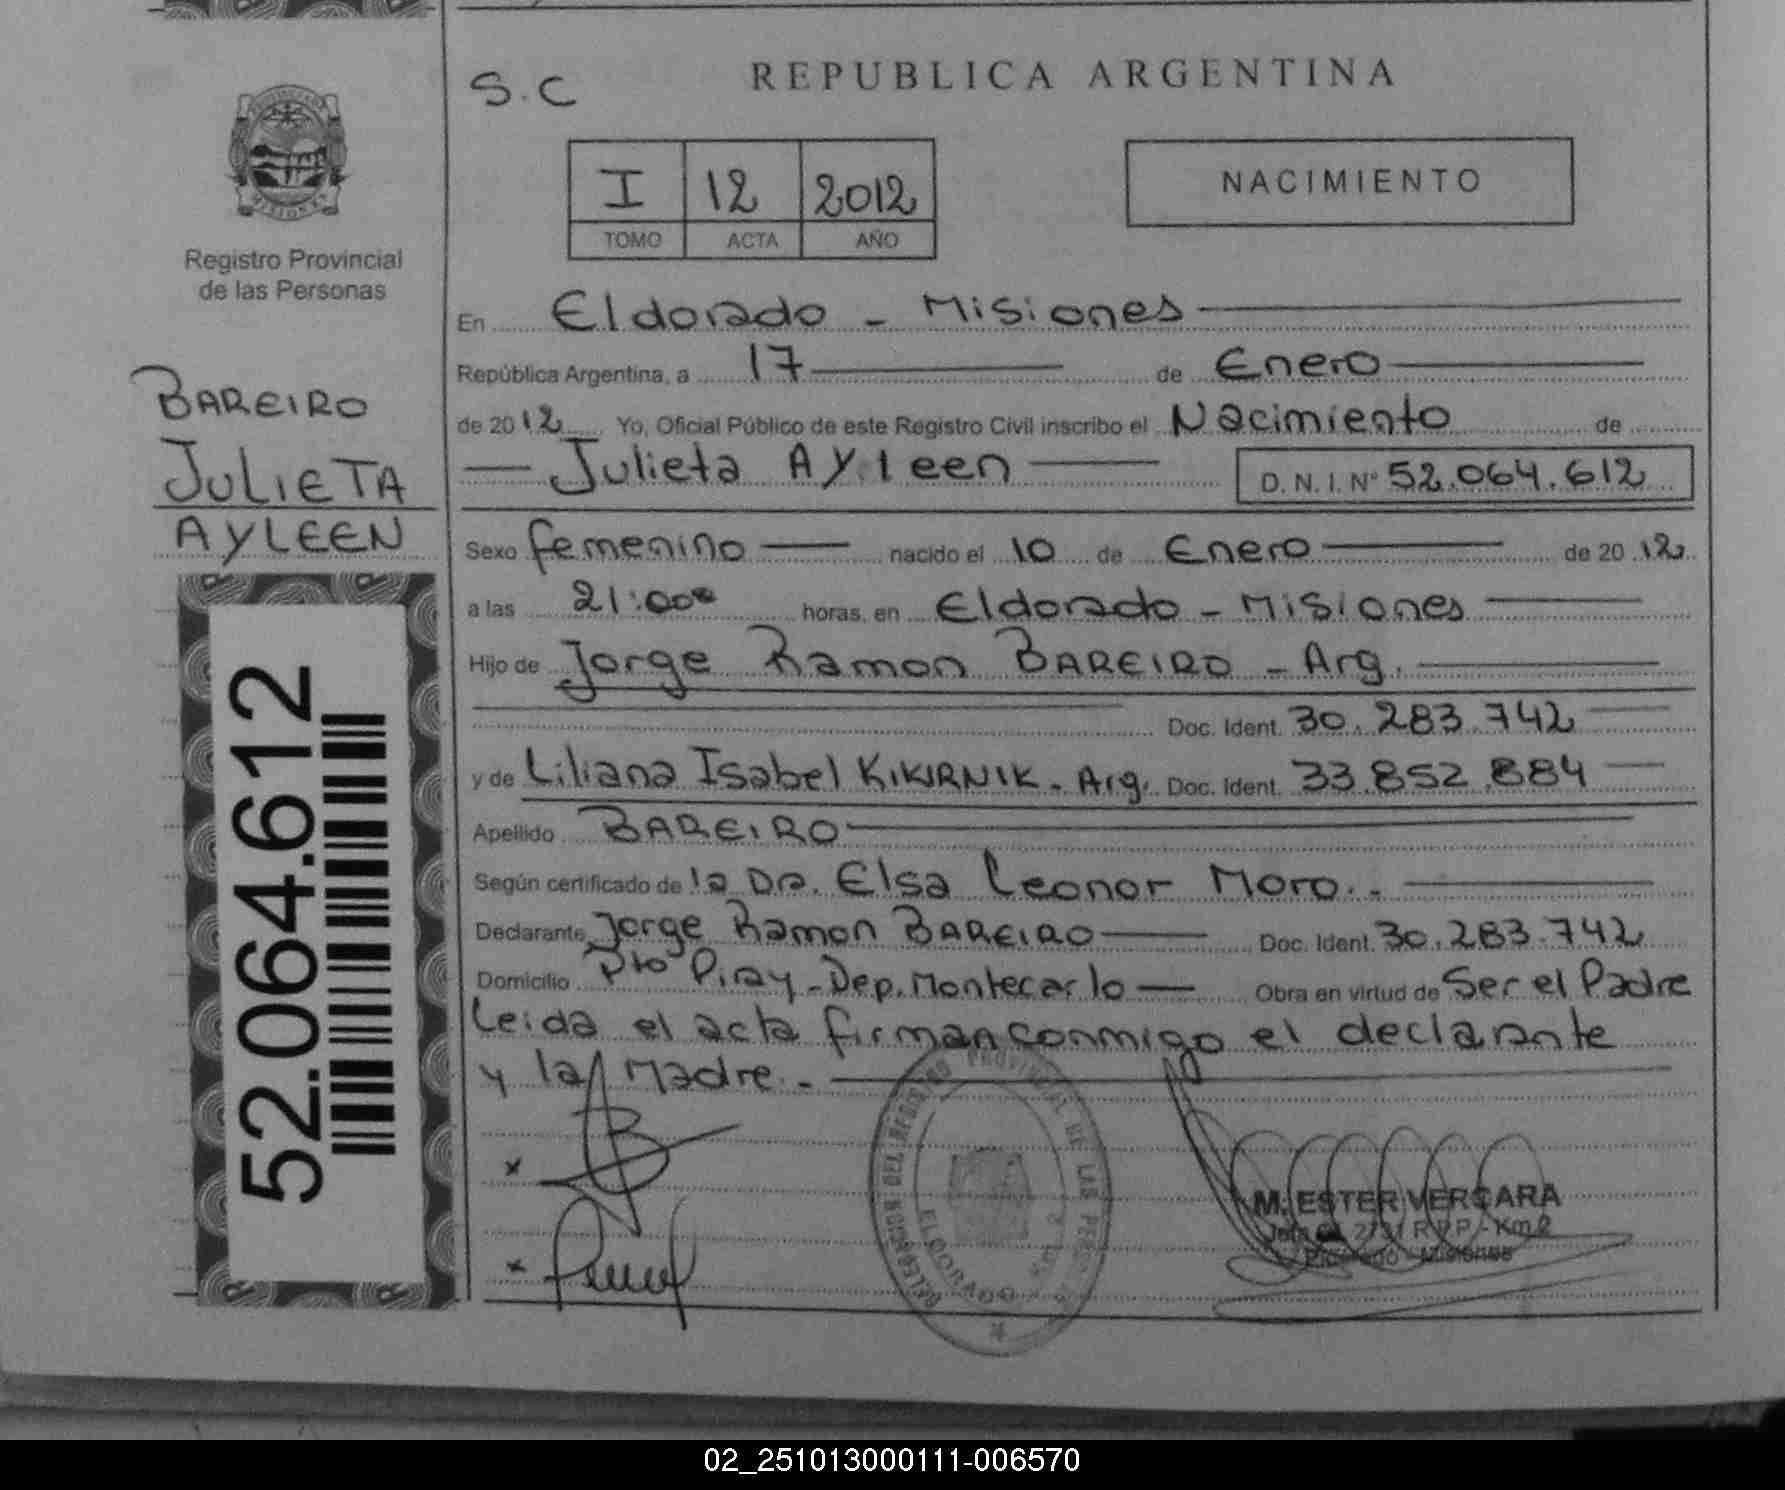 S.C
REPUBLICA ARGENTINA
I 12 2012
TOMO ACTA AÑO
NACIMIENTO
Registro Provincial
de las Personas
BAREIRO
JULIETA
AYLEEN
52.064.612
En Eldorado - Misiones
República Argentina, a 17 de Enero
de 2012 Yo, Oficial Público de este Registro Civil inscribo el Nacimiento de
Julieta Ayleen D. N. I. Nº 52.064.612
Sexo femenino nacido el 10 de Enero de 2012
a las 21:00 horas, en Eldorado - Misiones
Hijo de Jorge Ramon BAREIRO - Arg.
Doc. Ident. 30.283.742
y de Liliana Isabel KIKIRNIK - Arg. Doc. Ident. 33.852.884
Apellido BAREIRO
Según certificado de la Dra. Elsa Leonor Moro.-
Declarante Jorge Ramon BAREIRO Doc. Ident. 30.283.742
Domicilio Pto Piray - Dep. Montecarlo Obra en virtud de Ser el Padre
Leida el acta firman conmigo el declarante
y la Madre.-
PROVINCIAL DE LAS
ELDORADO
M. ESTER VERGARA
2731 R.P.P - Km 2
Eldorado - Misiones
02_251013000111-006570